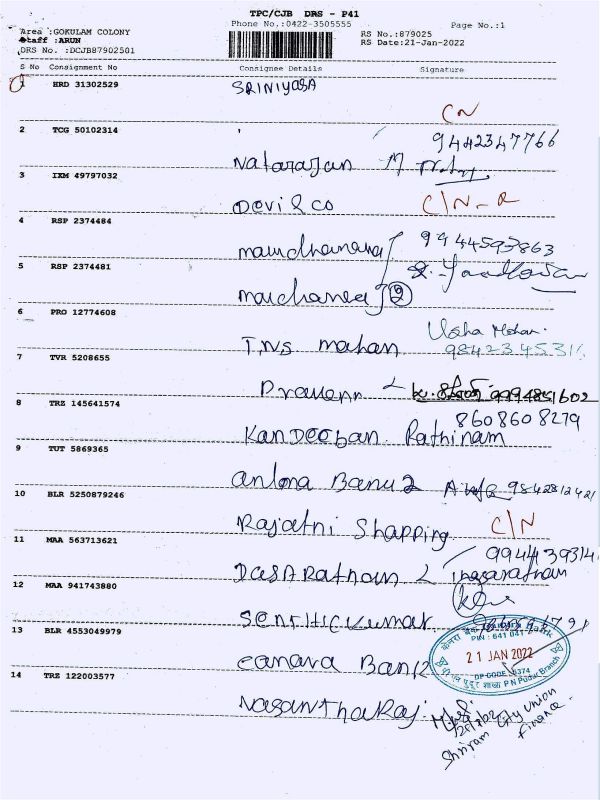 TPC/CJB DRS - P41
Phone No.:0422-3505555
Page No.:1
Area :GOKULAM COLONY
Staff :ARUN
DRS No. :DCJB87902501
RS No.:879025
RS Date:21-Jan-2022
S No Consignment No Consignee Details Signature
1 HRD 31302529 SRINIVASA
CN
2 TCG 50102314 9442347766
Natarajan M
3 IXM 49797032
Devi & co C/N - R
4 RSP 2374484
9944595863
5 RSP 2374481
2
6 PRO 12774608 Usha Mohan.
T.N.S mohan
7 TVR 5208655
Praveen 9994851602
8 TRZ 145641574 8608608279
Kandeeban. Rathinam
9 TUT 5869365
Banu 2 9842812421
10 BLR 5250879246
Shapping C/N
11 MAA 563713621 994439314
DasaRatham
12 MAA 941743880
Senthil Kumar
13 BLR 4553049979 PIN : 641 041
21 JAN 2022
canara Bank
DP CODE 6374
P N Pudur Branch
14 TRZ 122003577
VasanthaRaj
Shriram City Union
Finance.